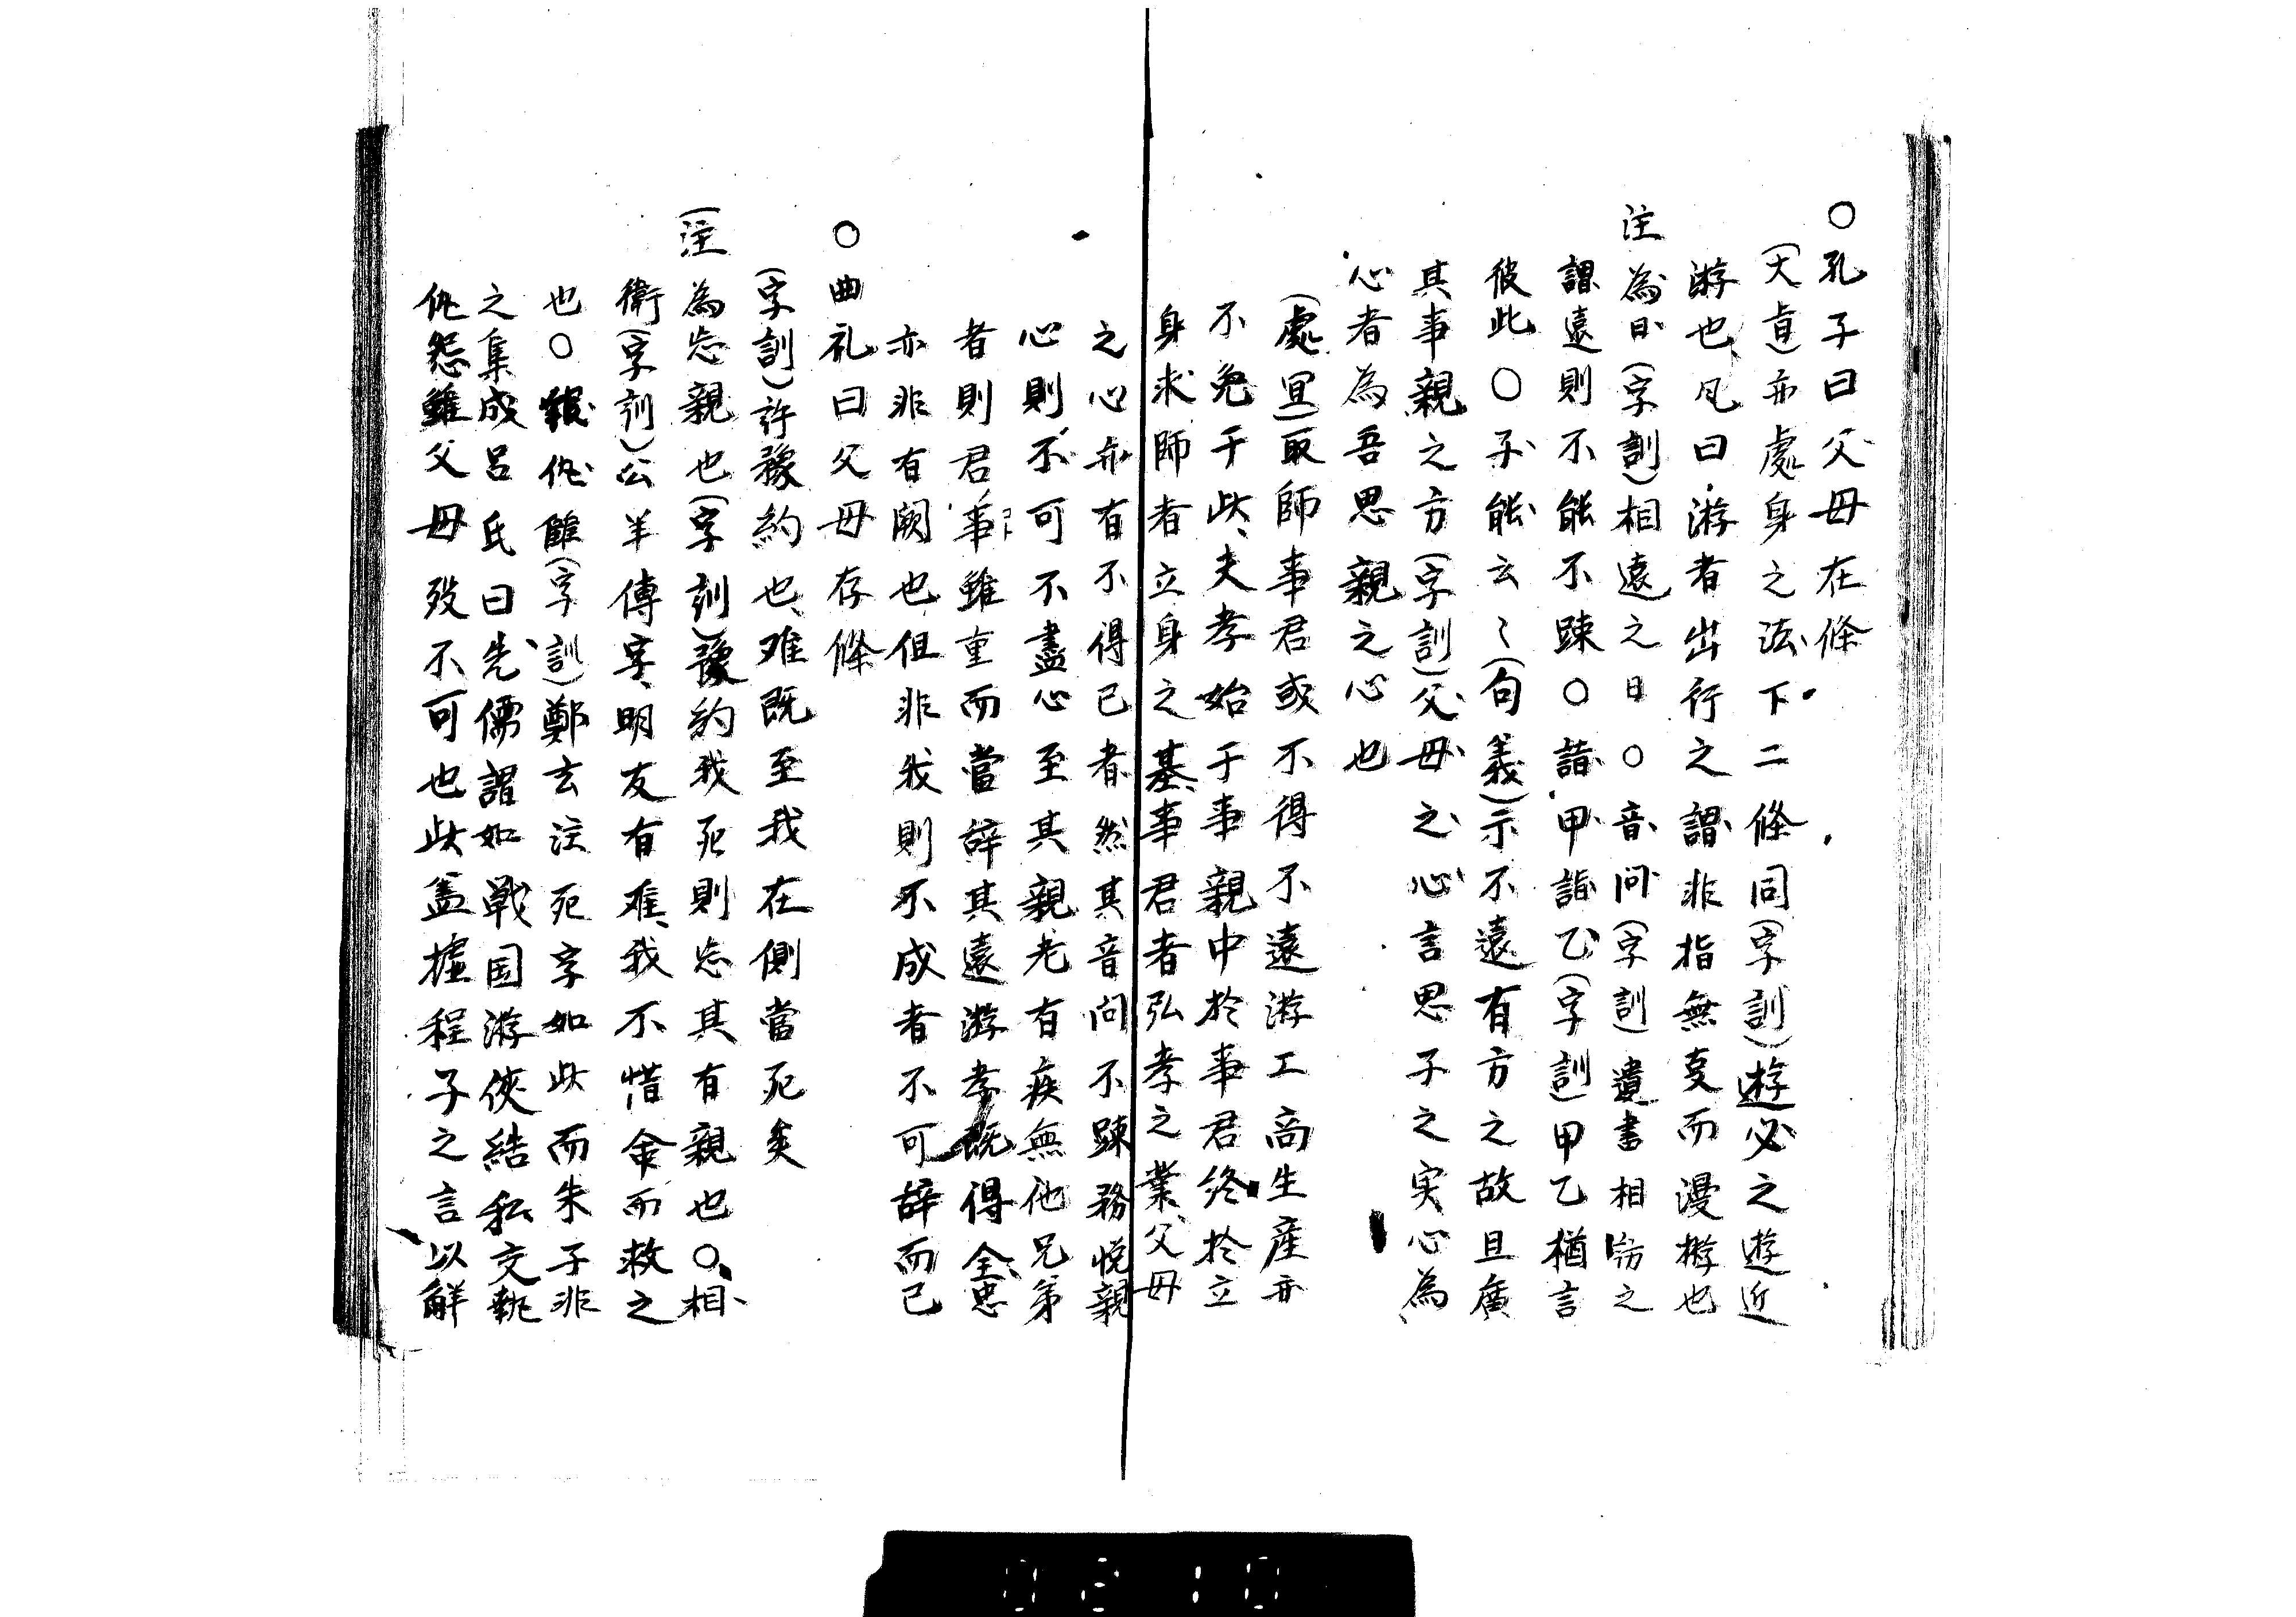 ○孔子曰父母在條
(大眞)亦處身之法下二條同(字訓)遊必之遊近
游也凡曰游者出行之謂非指無㕝而漫遊也
注為日(字訓)相遠之日○音問(字訓)遺書相訪之
謂遠則不能不踈○詣甲詣乙(字訓)甲乙猶言
彼此○子能云〻(句義)示不遠有方之故且廣
其事親之方(字訓)父母之心言思子之実心為
心者為吾思親之心也
(處宜)取師事君或不得不遠游工商生産亦
不免于此夫孝始于事親中於事君終於立
身求師者立身之基事君者弘孝之業父母
之心亦有不得已者然其音問不踈務悅親
心則不可不盡心至其親老有疾無他兄弟
者則君事雖重而當辞其遠游孝既得全忠
亦非有闕也但非我則不成者不可辞而已
○曲礼曰父母存條
(字訓)許豫約也难既至我在側當死矣
(注為忘親也(字訓)豫約我死則忘其有親也○相
衛(字訓)公羊傳字明友有难我不惜命而救之
也○報仇雠(字訓)鄭玄注死字如此而朱子非
之集成呂氏曰先儒謂如戦国游俠結私交執
仇怨雖父母殁不可也此蓋據程子之言以解